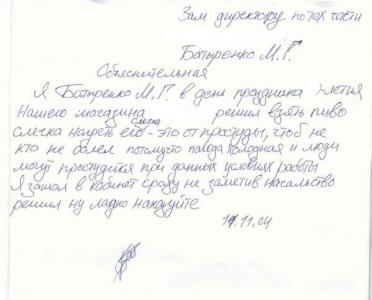 Зам директору по тех части
Батыренко М.Г.
Объяснительная
Я Батыренко М.Г. в день праздника -летия
Нашего магазина решил взять пиво
слегка
слегка нагреть его - это от простуды, чтоб не
кто не болел потомучто погода холодная и люди
могут простудится при данных условиях работы
Я зашол в кабинет сразу не заметив начальство
решил ну ладно накажуйте
11.11.04